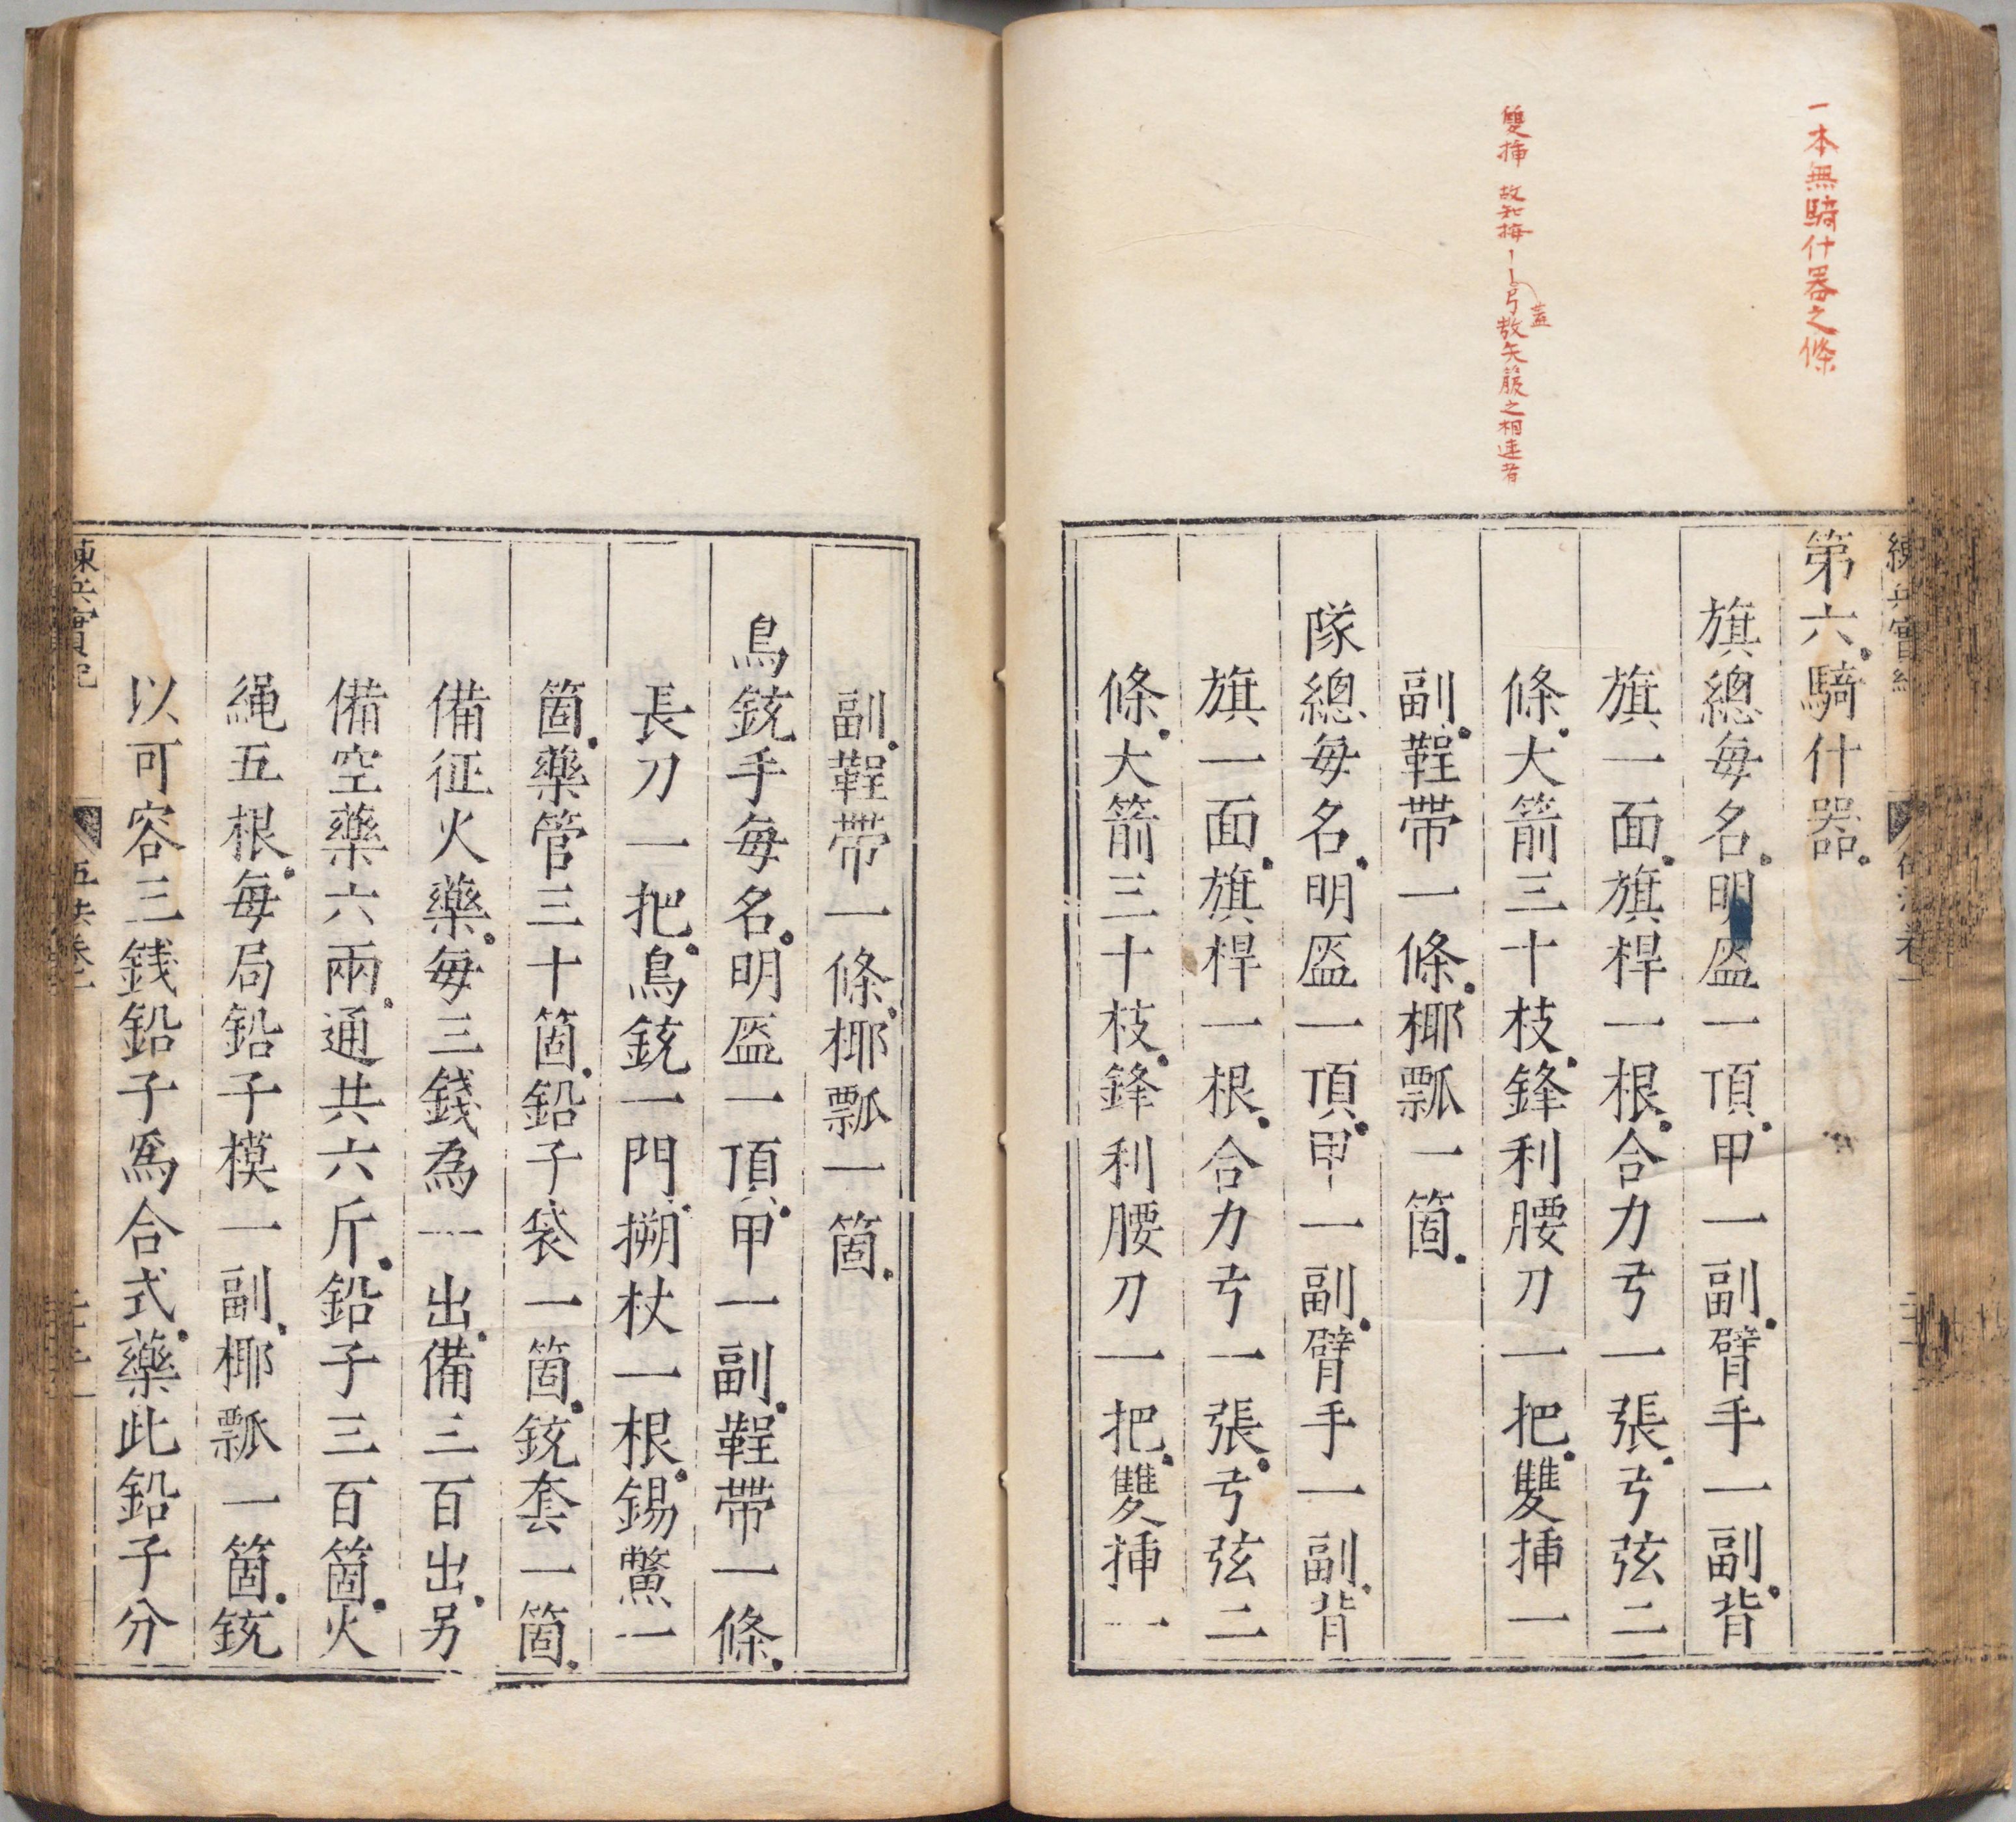 一本無騎什器之條
雙揷
練兵實紀
第六騎什器
旗總每名明盔一頂甲一副臂手一副背
旗一面旗桿一根合力弓一張弓弦二
條大箭三十枝鋒利腰刀一把雙揷一
副鞓帶一條椰瓢一箇
隊總每名明盔一頂甲一副臂手一副背
旗一面旗桿一根合力弓一張弓弦二
條大箭三十枝鋒利腰刀一把雙揷一
副鞓帶一條椰瓢一箇
鳥銃手每名明盔一頂甲一副鞓帶一條
長刀一把鳥銃一門搠杖一根錫鱉一
箇藥管三十箇鉛子袋一箇銃套一箇
備征火藥每三錢為一出備三百出另
備空藥六兩通共六斤鉛子三百箇火
繩五根每局鉛子模一副椰瓢一箇銃
以可容三錢鉛子爲合式藥此鉛子分
練兵實紀